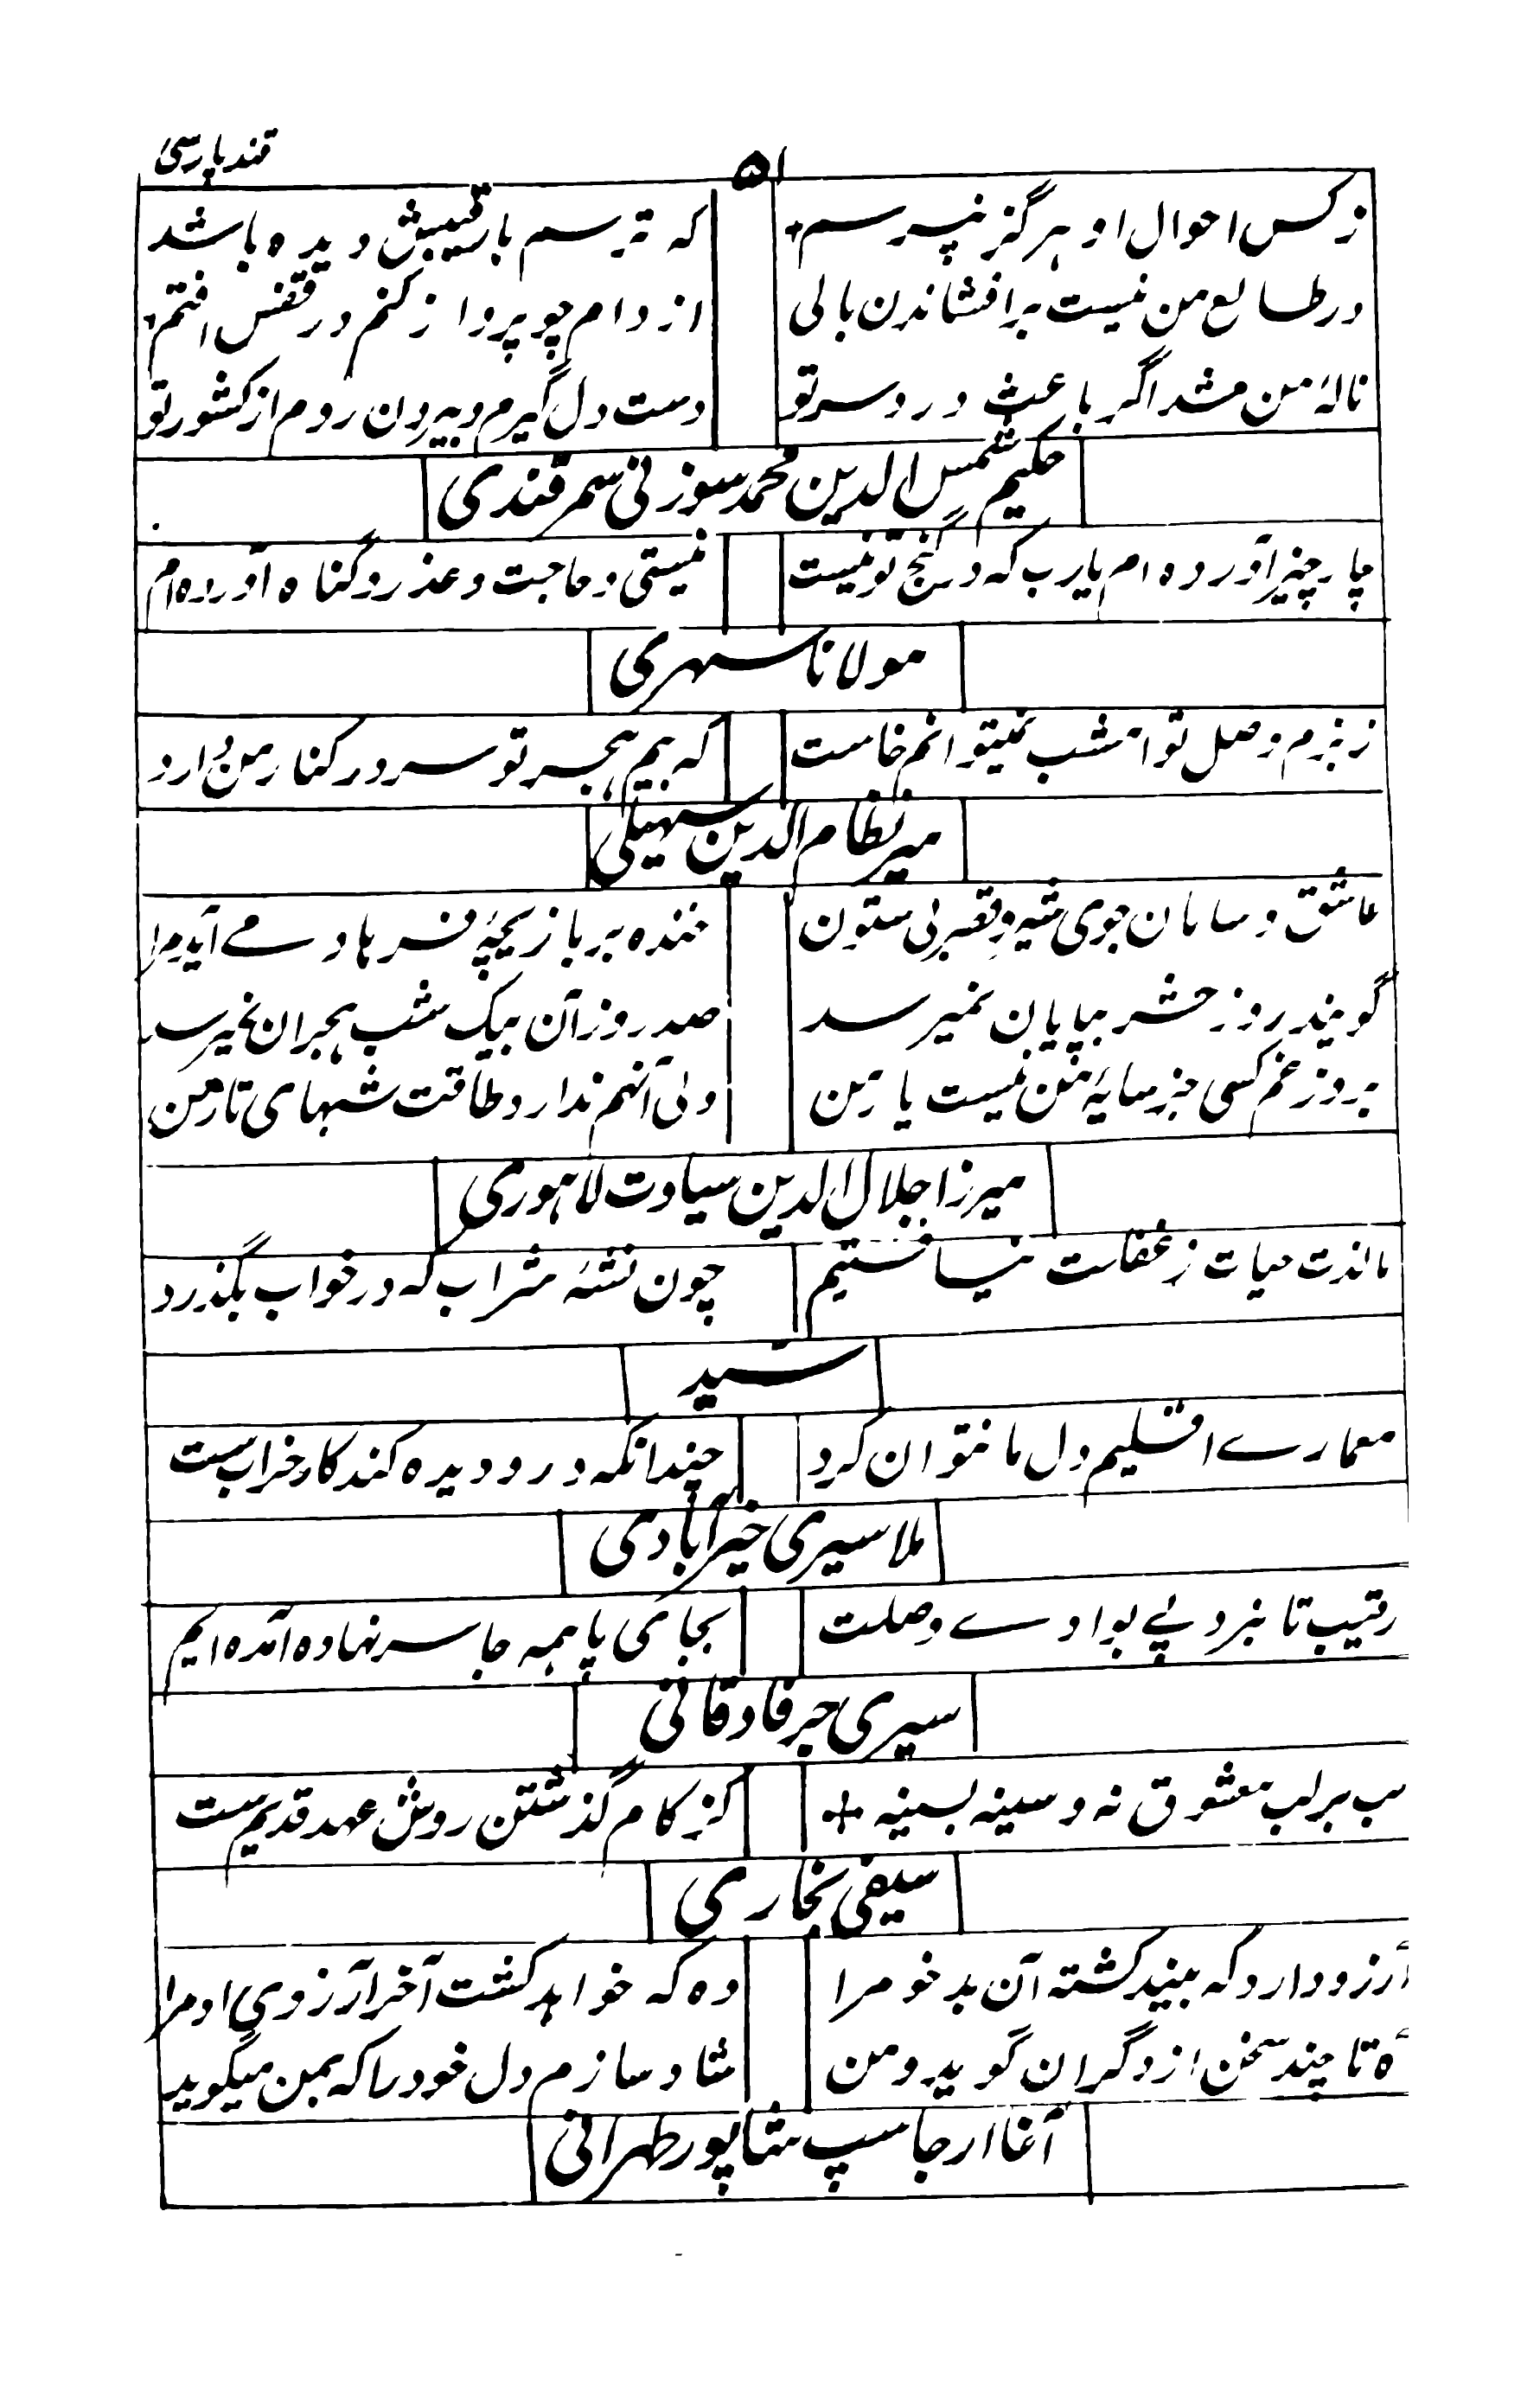 قند پارسی
۵۱
ز کس احوال او هرگز نپرسم
که ترسم با رقیبش دیده باشد
در طالع من نیست بر افشاندن بالی
از دام چو پرواز کنم در قفس افتم
نالهٔ من شد اگر باعث درد سر تو
دست دل گیرم و بیرون روم از کشور تو
حکیم شمس الدین محمد سوزنی سمرقندی
چار چیز آورده ام یارب که در گنج تو نیست
نیستی و حاجت و عذر و گناه آورده ام
مولانا سهری
ز بزم وصل تو امشب نمیتوانم خاست
که بیم هجر تو سر در کنار من دارد
میر نظام الدین سهیلی
عاشق و سامان جوی شیر و قصر بی ستون
خنده بر بازیچهٔ فرهاد مے آید مرا
گویند روز حشر بپایان نمیرسد
صد روز آن بیک شب هجران نمیرسد
بروز غم کسی جز سایهٔ من نیست یار من
ولی آنهم ندارد طاقت شبهای تار من
میرزا جلال الدین سیادت لاهوری
ما لذت حیات ز غفلت نیافتیم
چون نشهٔ شراب که در خواب بگذرد
سید
معمارے اقلیم دل ما نتوان کرد
چندانکه درو دیده کند کار خراب ست
ملا سیری خیرآبادی
رقیب تا نبرد پی بوادے وصلت
بجای پا همه جا سر نهاده آمده ایم
سیری جرفادقانی
لب بر لب معشوق نه و سینه بسینه
کز کام گذشتن روش عهد قدیم ست
سیفی بخاری
آرزو دارد که بیند کشته آن بدخو مرا
وه که خواهد کشت آخر آرزوی او مرا
آه تا چند سخن از دگران گوید و من
شاد سازم دل خود را که بمن میگوید
آغا ارجاسپ شاپور طهرانی